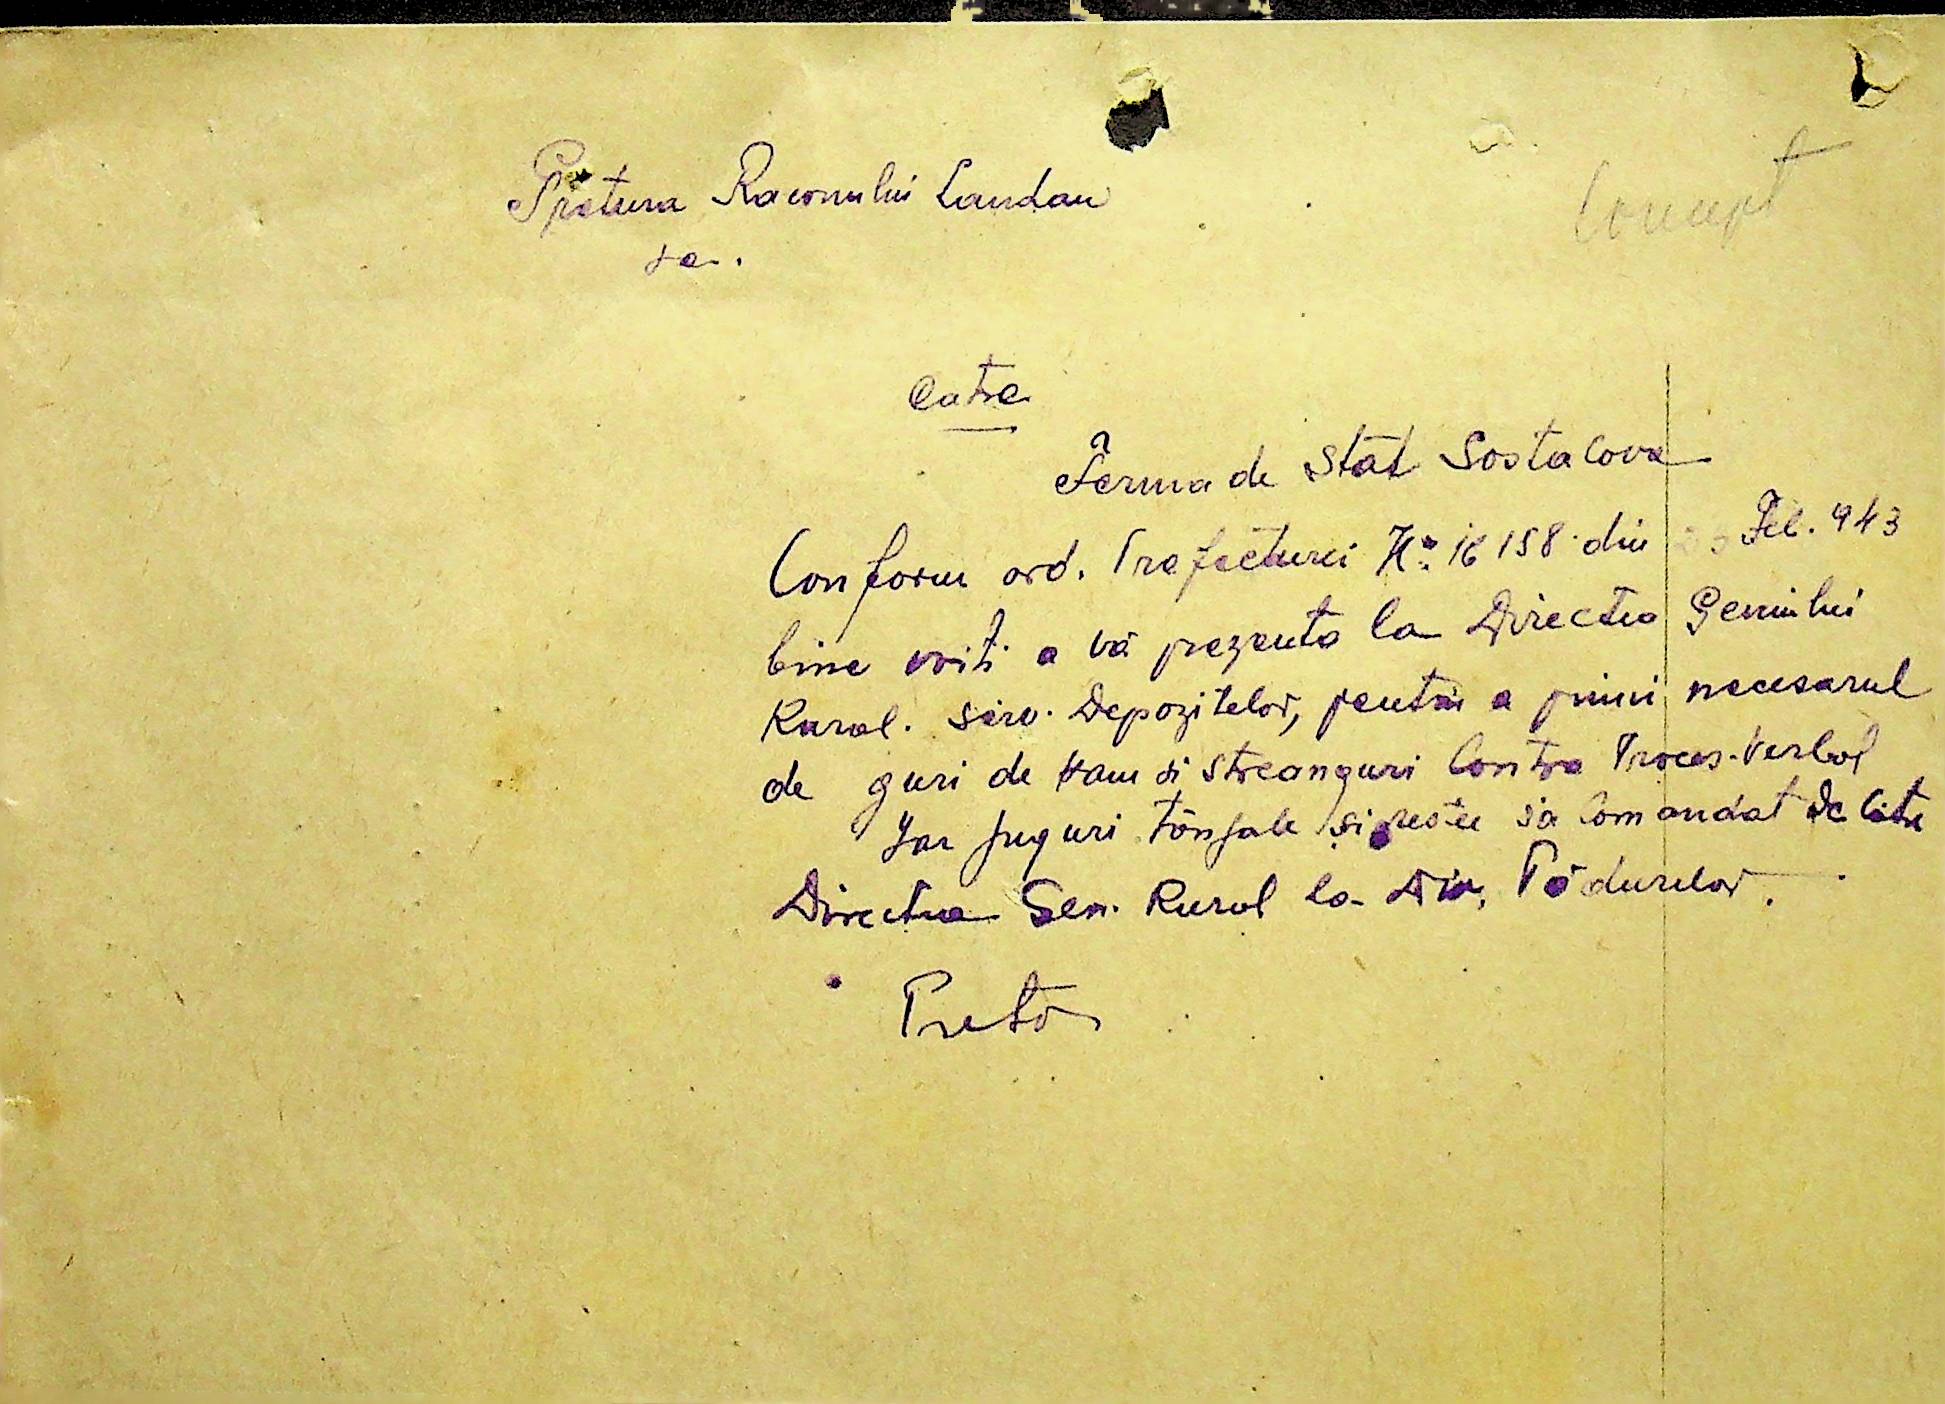 Pretura Raconului Landau
Concept
Catre
Ferma de Stat Sostacova
Conform ord. Prefecturei No: 16158 din Feb. 943
bine voiti a vă prezenta la Directia Geniului
Rural. Serv. Depozitelor, pentru a primi necesarul
de guri de Ham si streanguri Contra Proces-Verbal
Iar juguri tânjale si restee sa Comandat De Catre
Directia Gen. Rural la Dir. Pădurilor.
Pretor